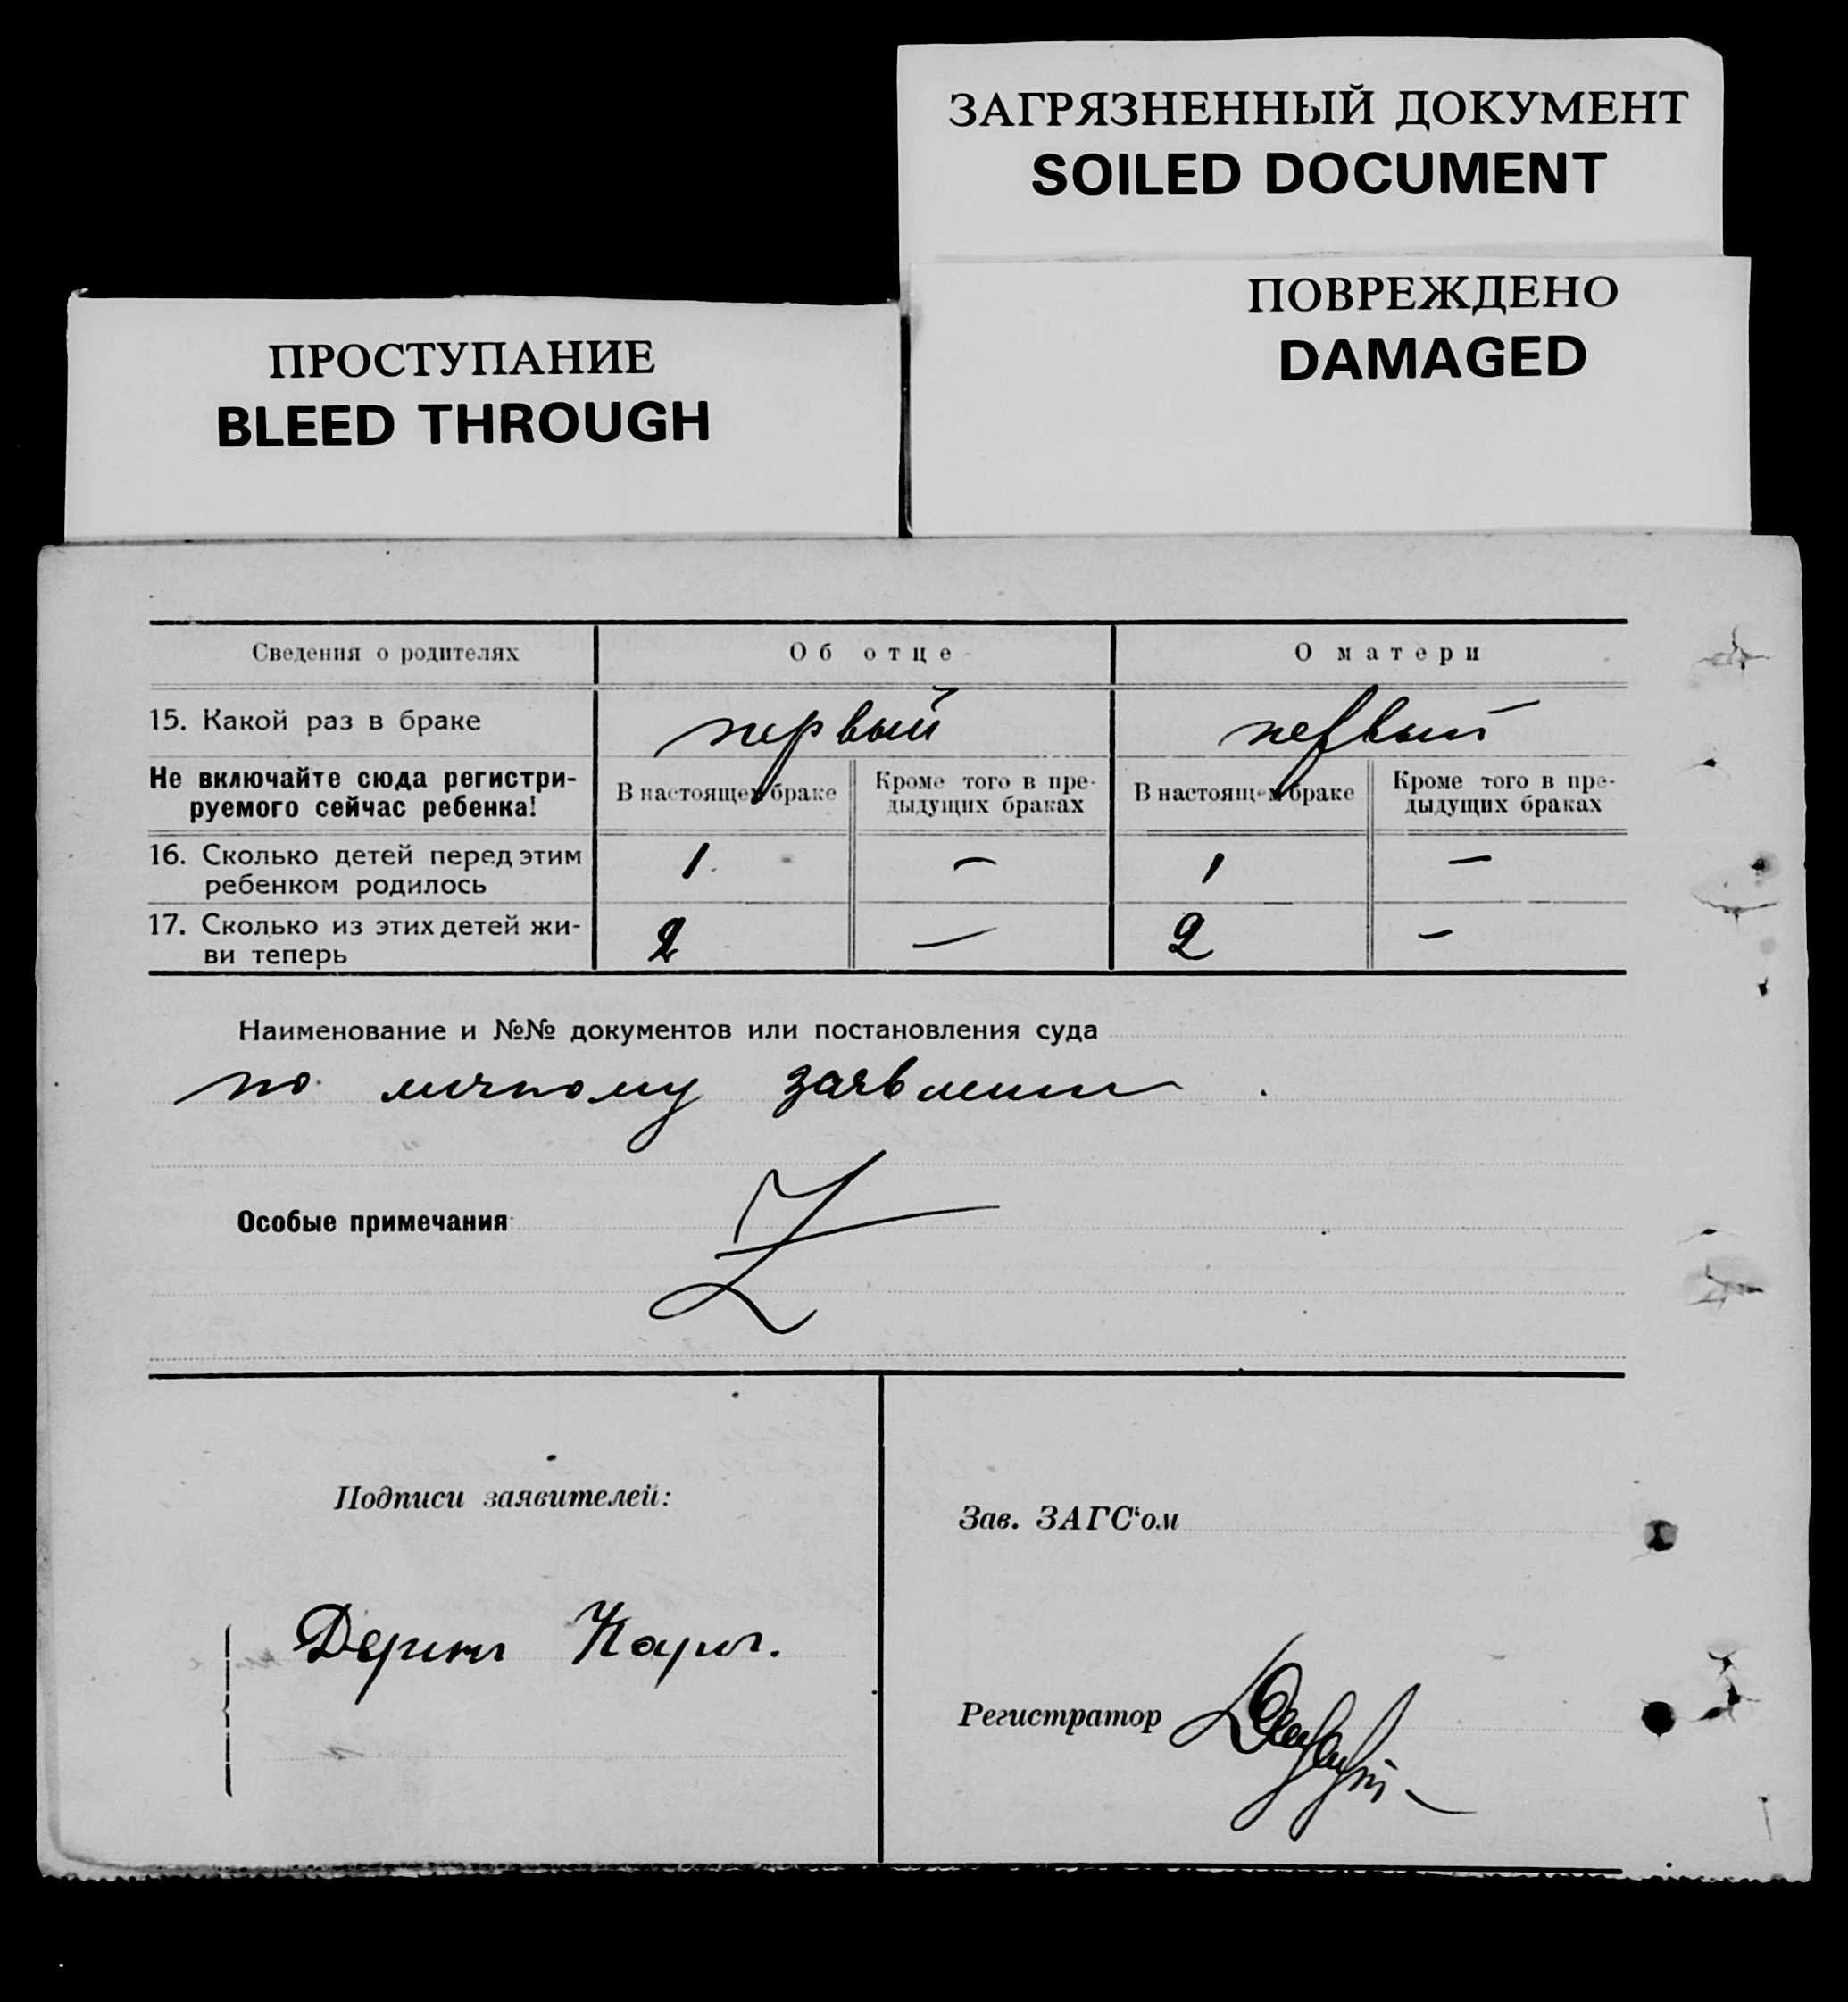 ЗАГРЯЗНЕННЫЙ ДОКУМЕНТ
SOILED DOCUMENT
ПОВРЕЖДЕНО
DAMAGED
ПРОСТУПАНИЕ
BLEED THROUGH
Сведения о родителях Об отце О матери
15. Какой раз в браке первый первый
Не включайте сюда регистри-
руемого сейчас ребенка!
В настоящем браке Кроме того в пре-
дыдущих браках
В настоящем браке Кроме того в пре-
дыдущих браках
16. Сколько детей перед этим
ребенком родилось 1 — 1 —
17. Сколько из этих детей жи-
ви теперь 2 — 2 -
Наименование и №№ документов или постановления суда
по личному заявлению
Особые примечания Z
Подписи заявителей:
Зав. ЗАГС‘ом
Регистратор